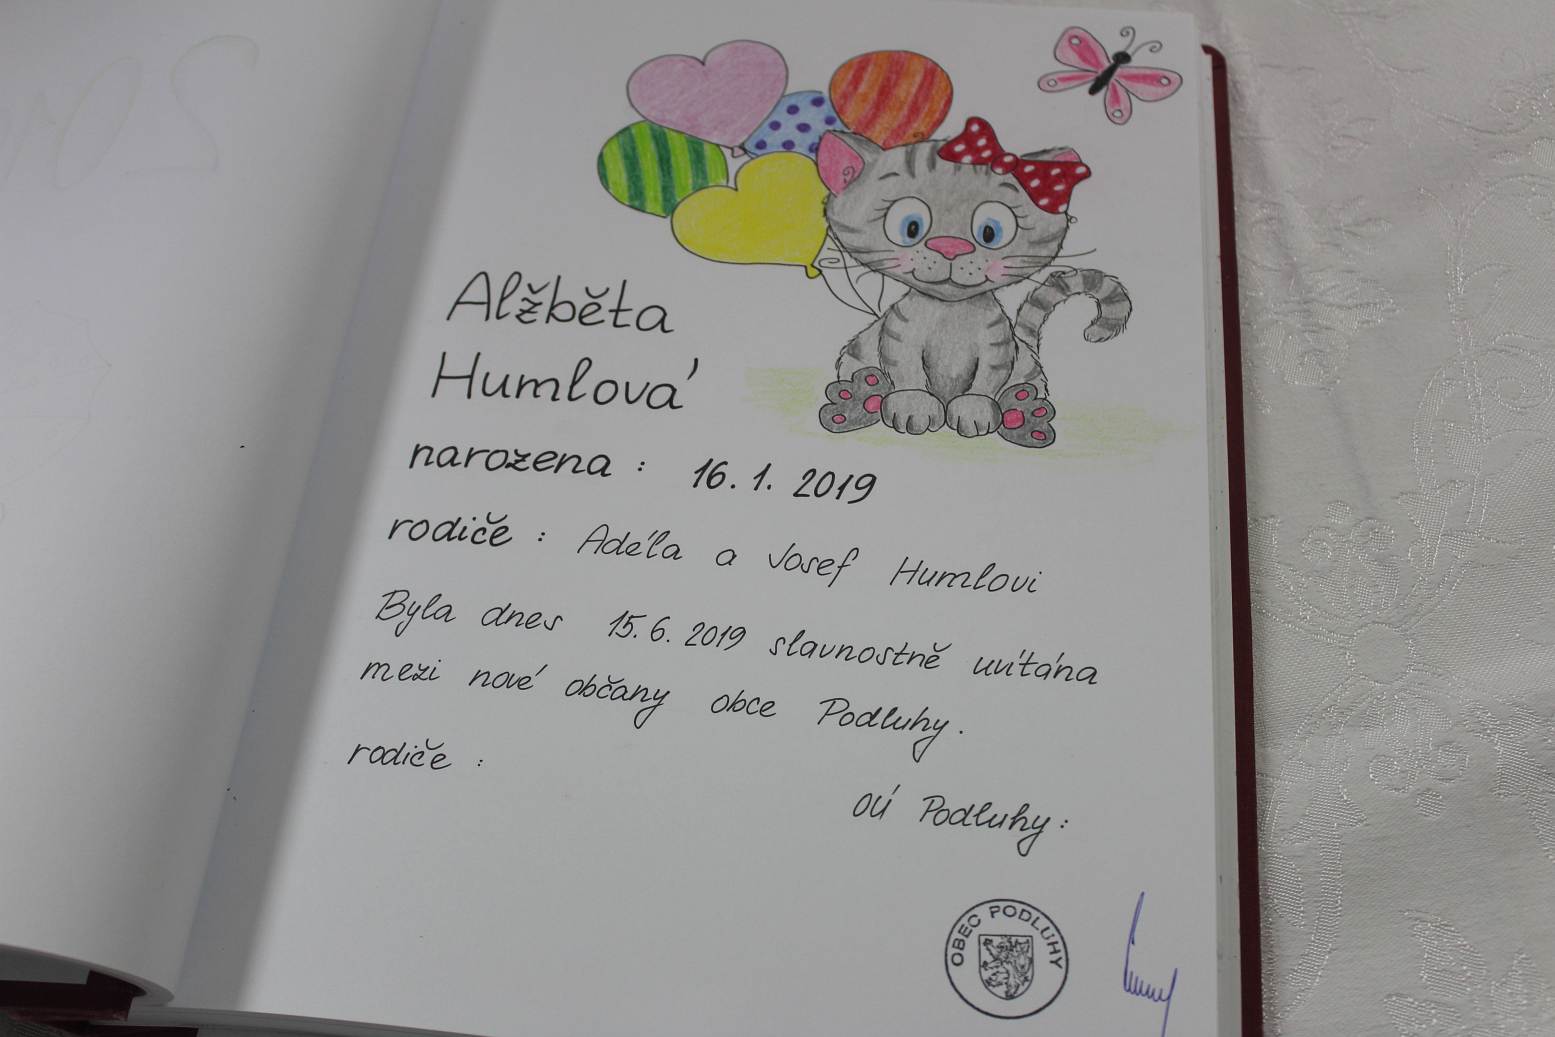 Alžběta
Humlová
narozena : 16. 1. 2019
rodiče : Adéla a Josef Humlovi
Byla dnes 15. 6. 2019 slavnostně uvítána
mezi nové občany obce Podluhy.
rodiče :
OÚ Podluhy :
OBEC PODLUHY